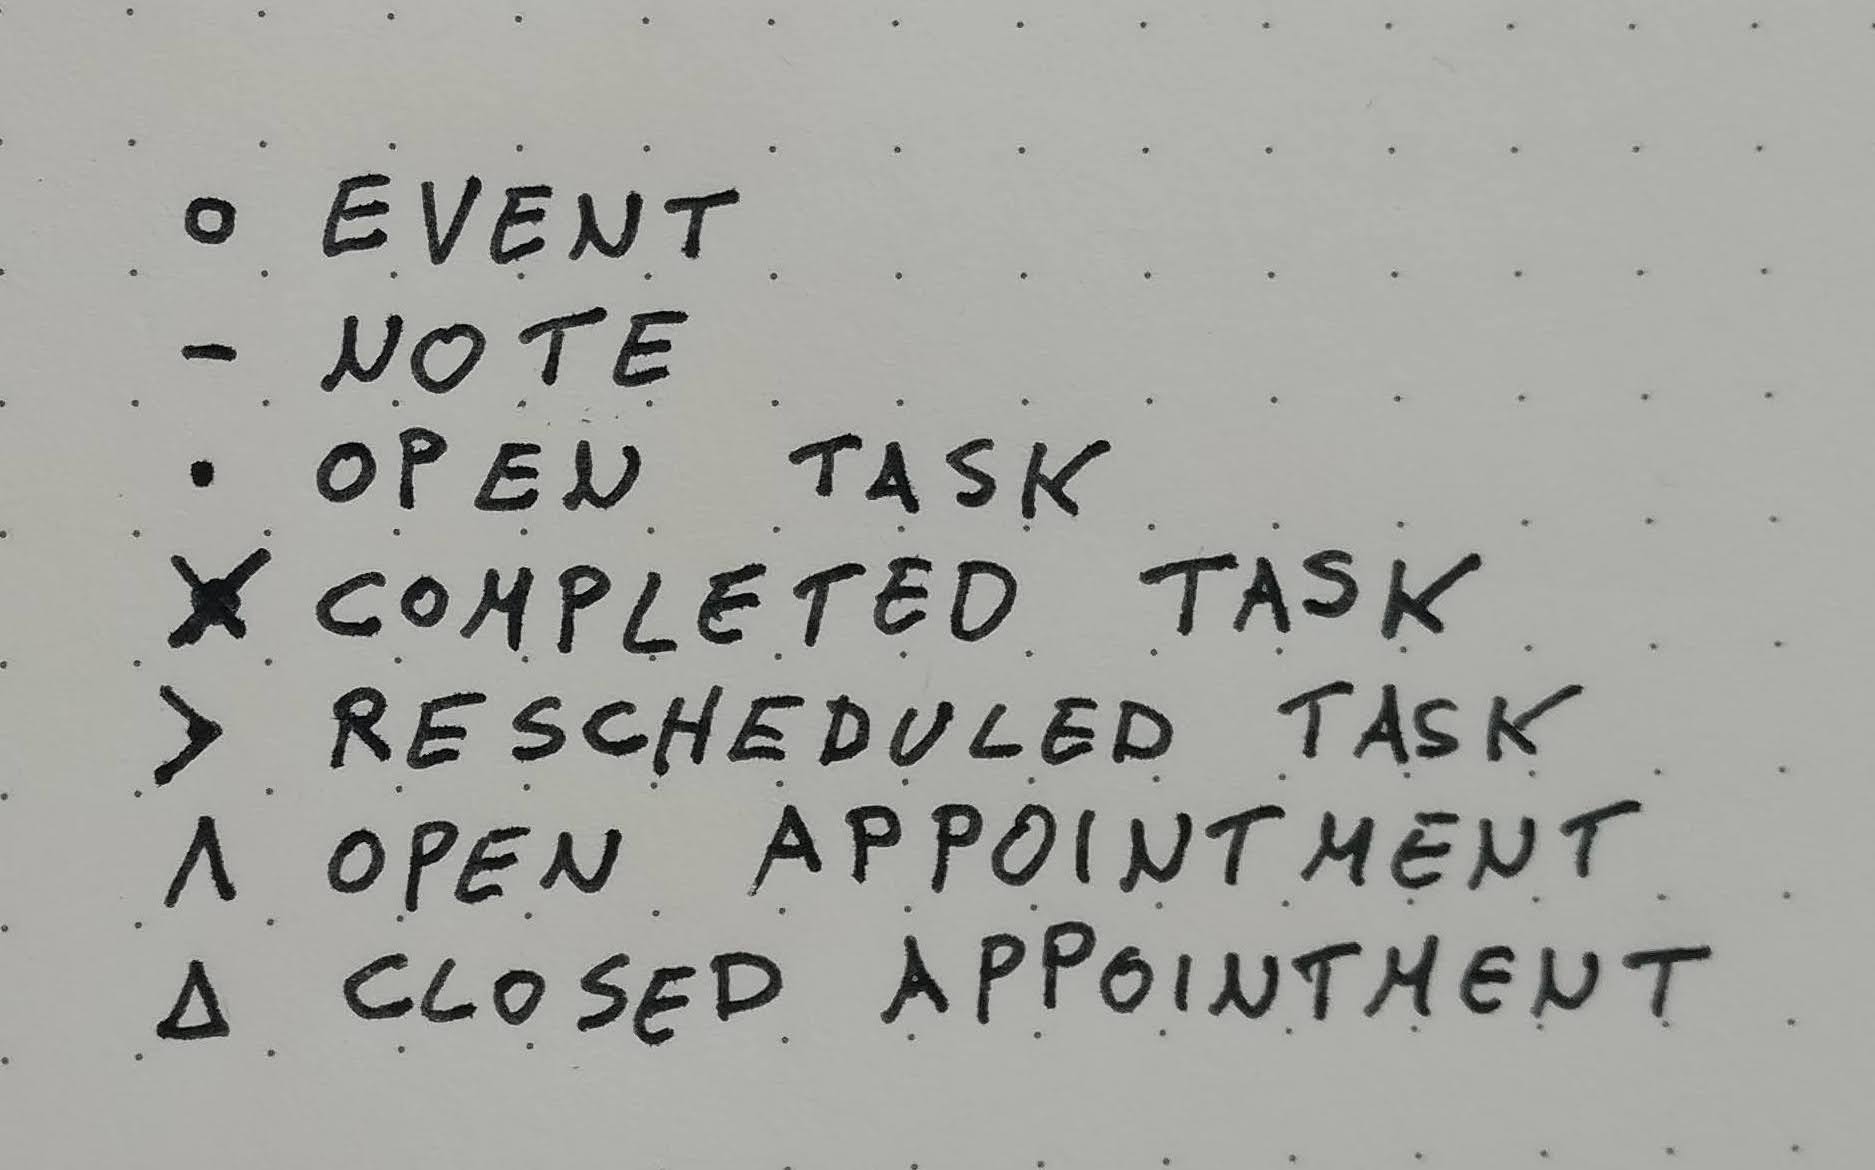 ○ EVENT
– NOTE
• OPEN TASK
× COMPLETED TASK
> RESCHEDULED TASK
Λ OPEN APPOINTMENT
Δ CLOSED APPOINTMENT